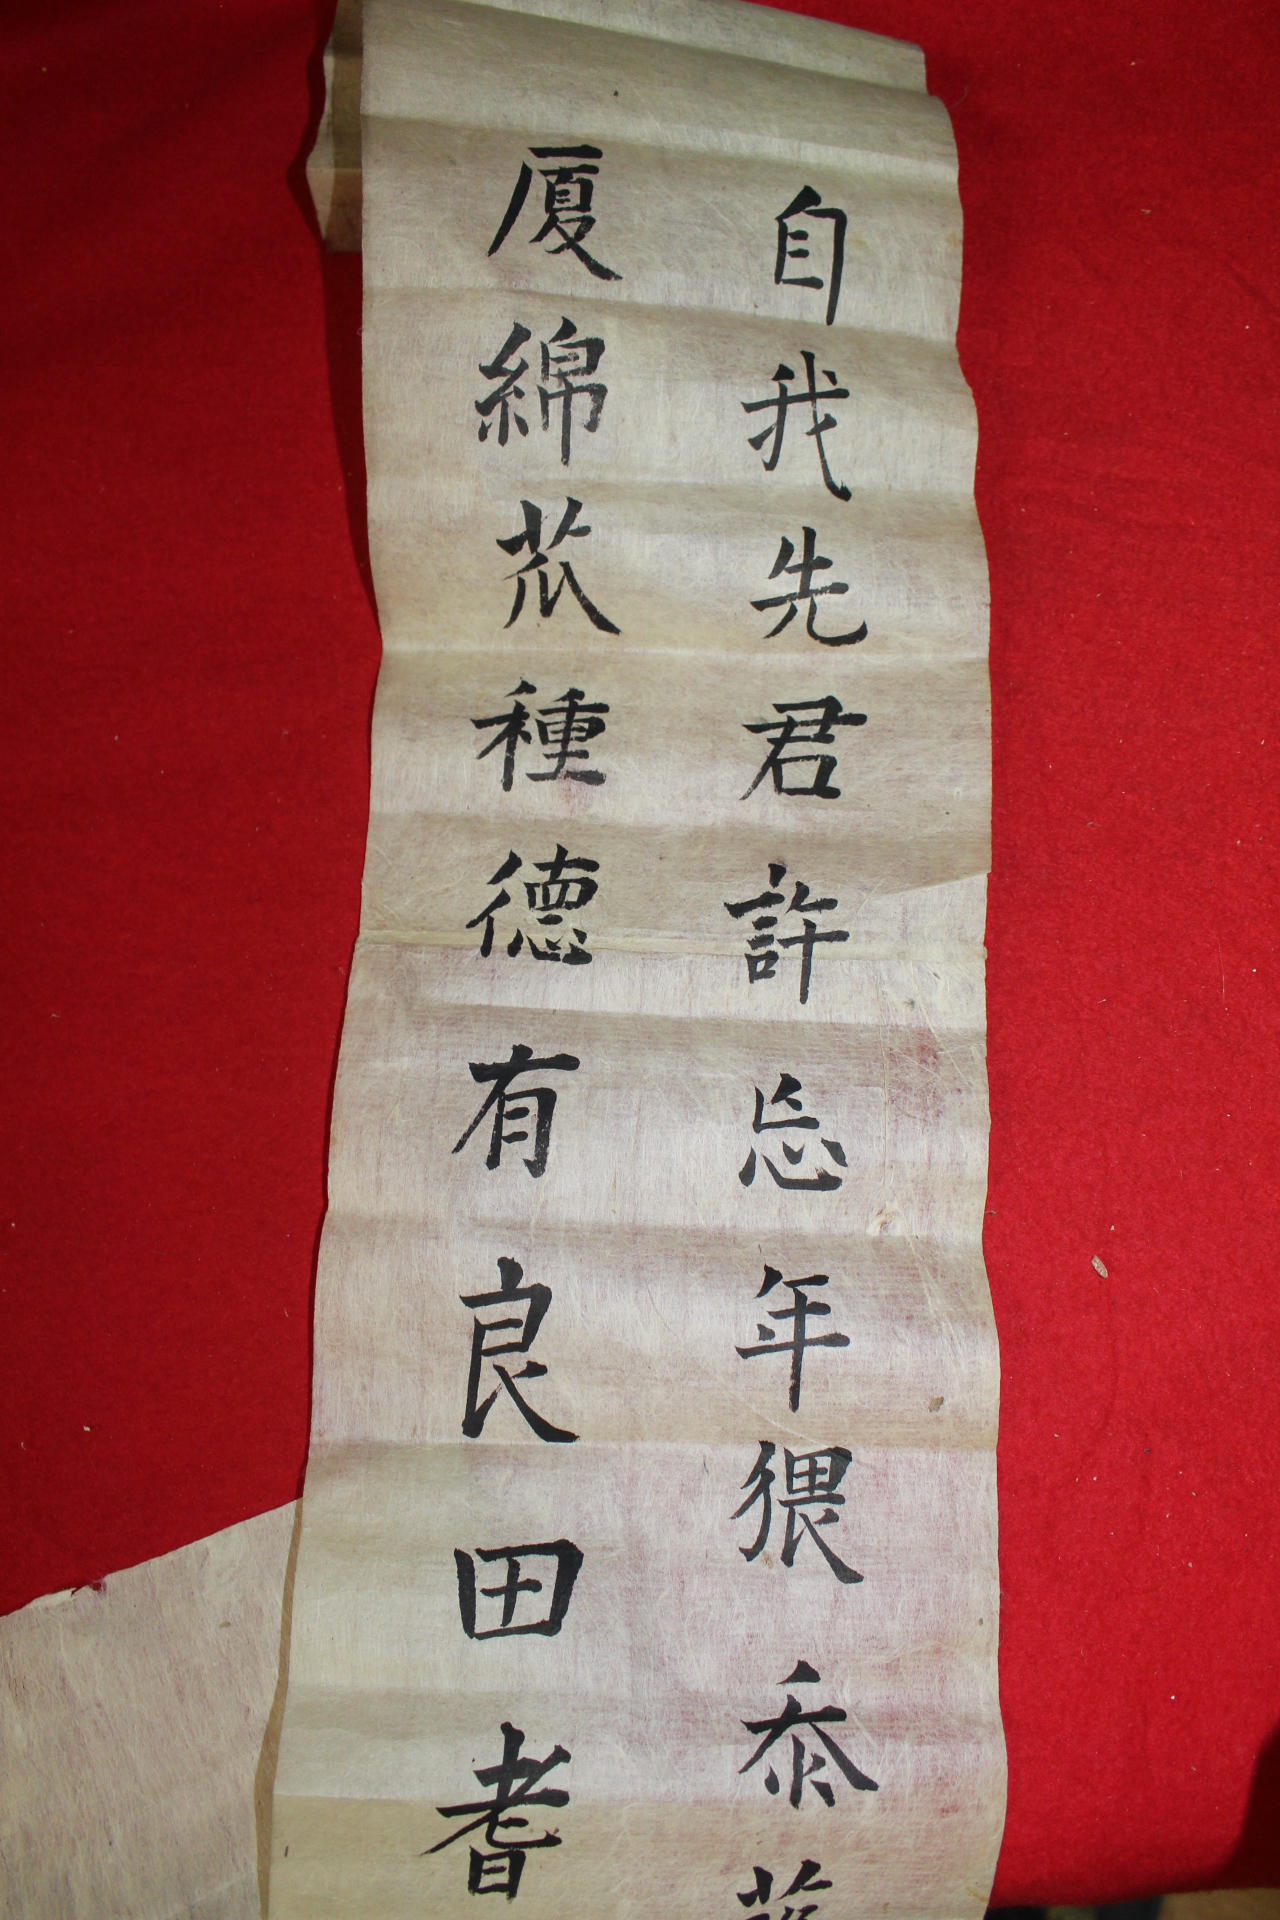 自我先君許忘年猥忝
厦綿苽種德有良田耆